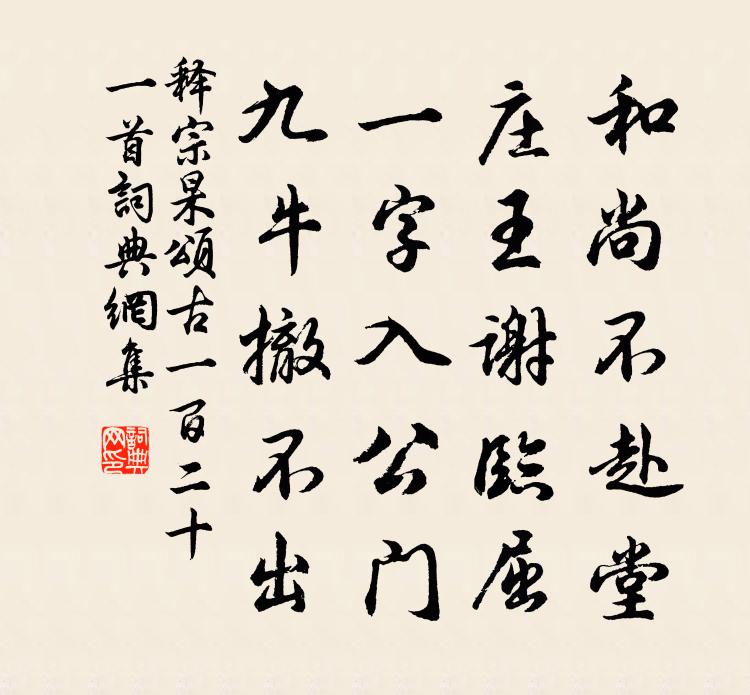 和尚不赴堂
庄王谢临屈
一字入公门
九牛撤不出
释宗杲颂古一百二十
一首詞典網集
詞典
网印